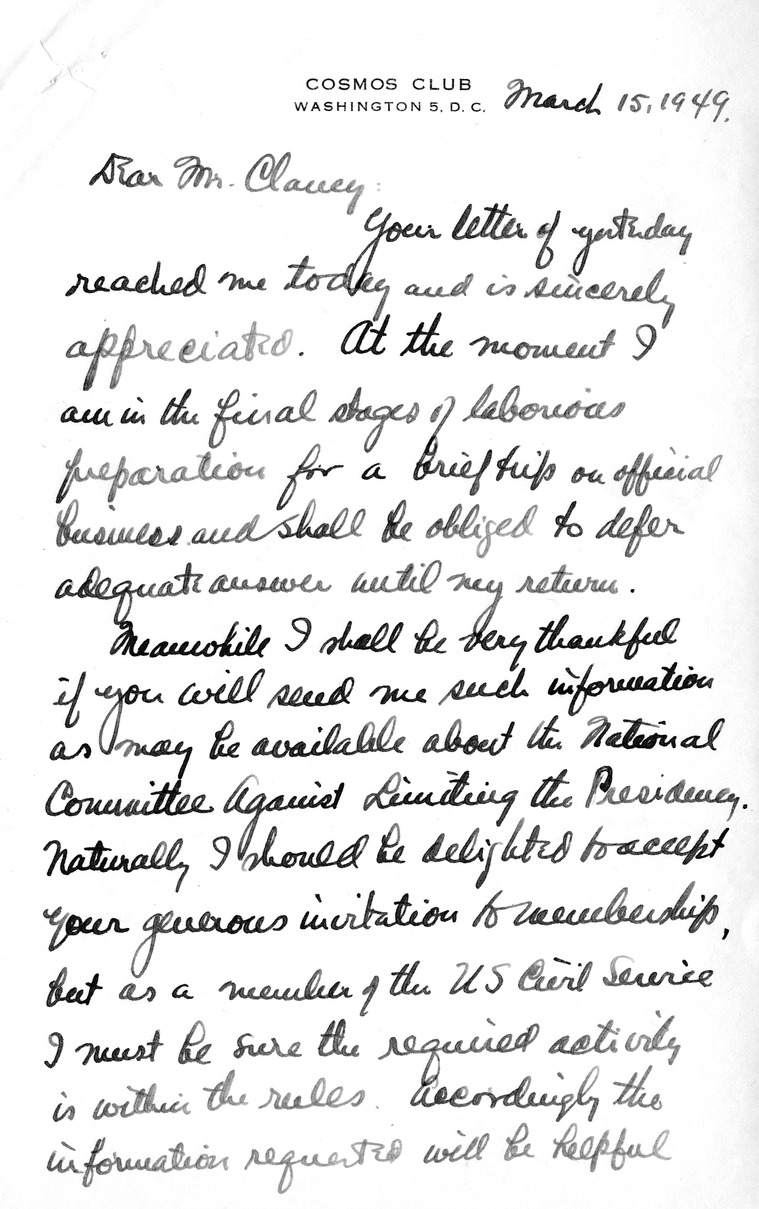 COSMOS CLUB
WASHINGTON 5, D. C.
March 15, 1949.
Dear Mr. Clancy:
Your letter of yesterday
reached me today and is sincerely
appreciated. At the moment I
am in the final stages of laborious
preparation for a brief trip on official
business and shall be obliged to defer
adequate answer until my return.
Meanwhile I shall be very thankful
if you will send me such information
as may be available about the National
Committee Against Limiting the Presidency.
Naturally I should be delighted to accept
your generous invitation to membership,
but as a member of the US Civil Service
I must be sure the required activity
is within the rules. Accordingly the
information requested will be helpful